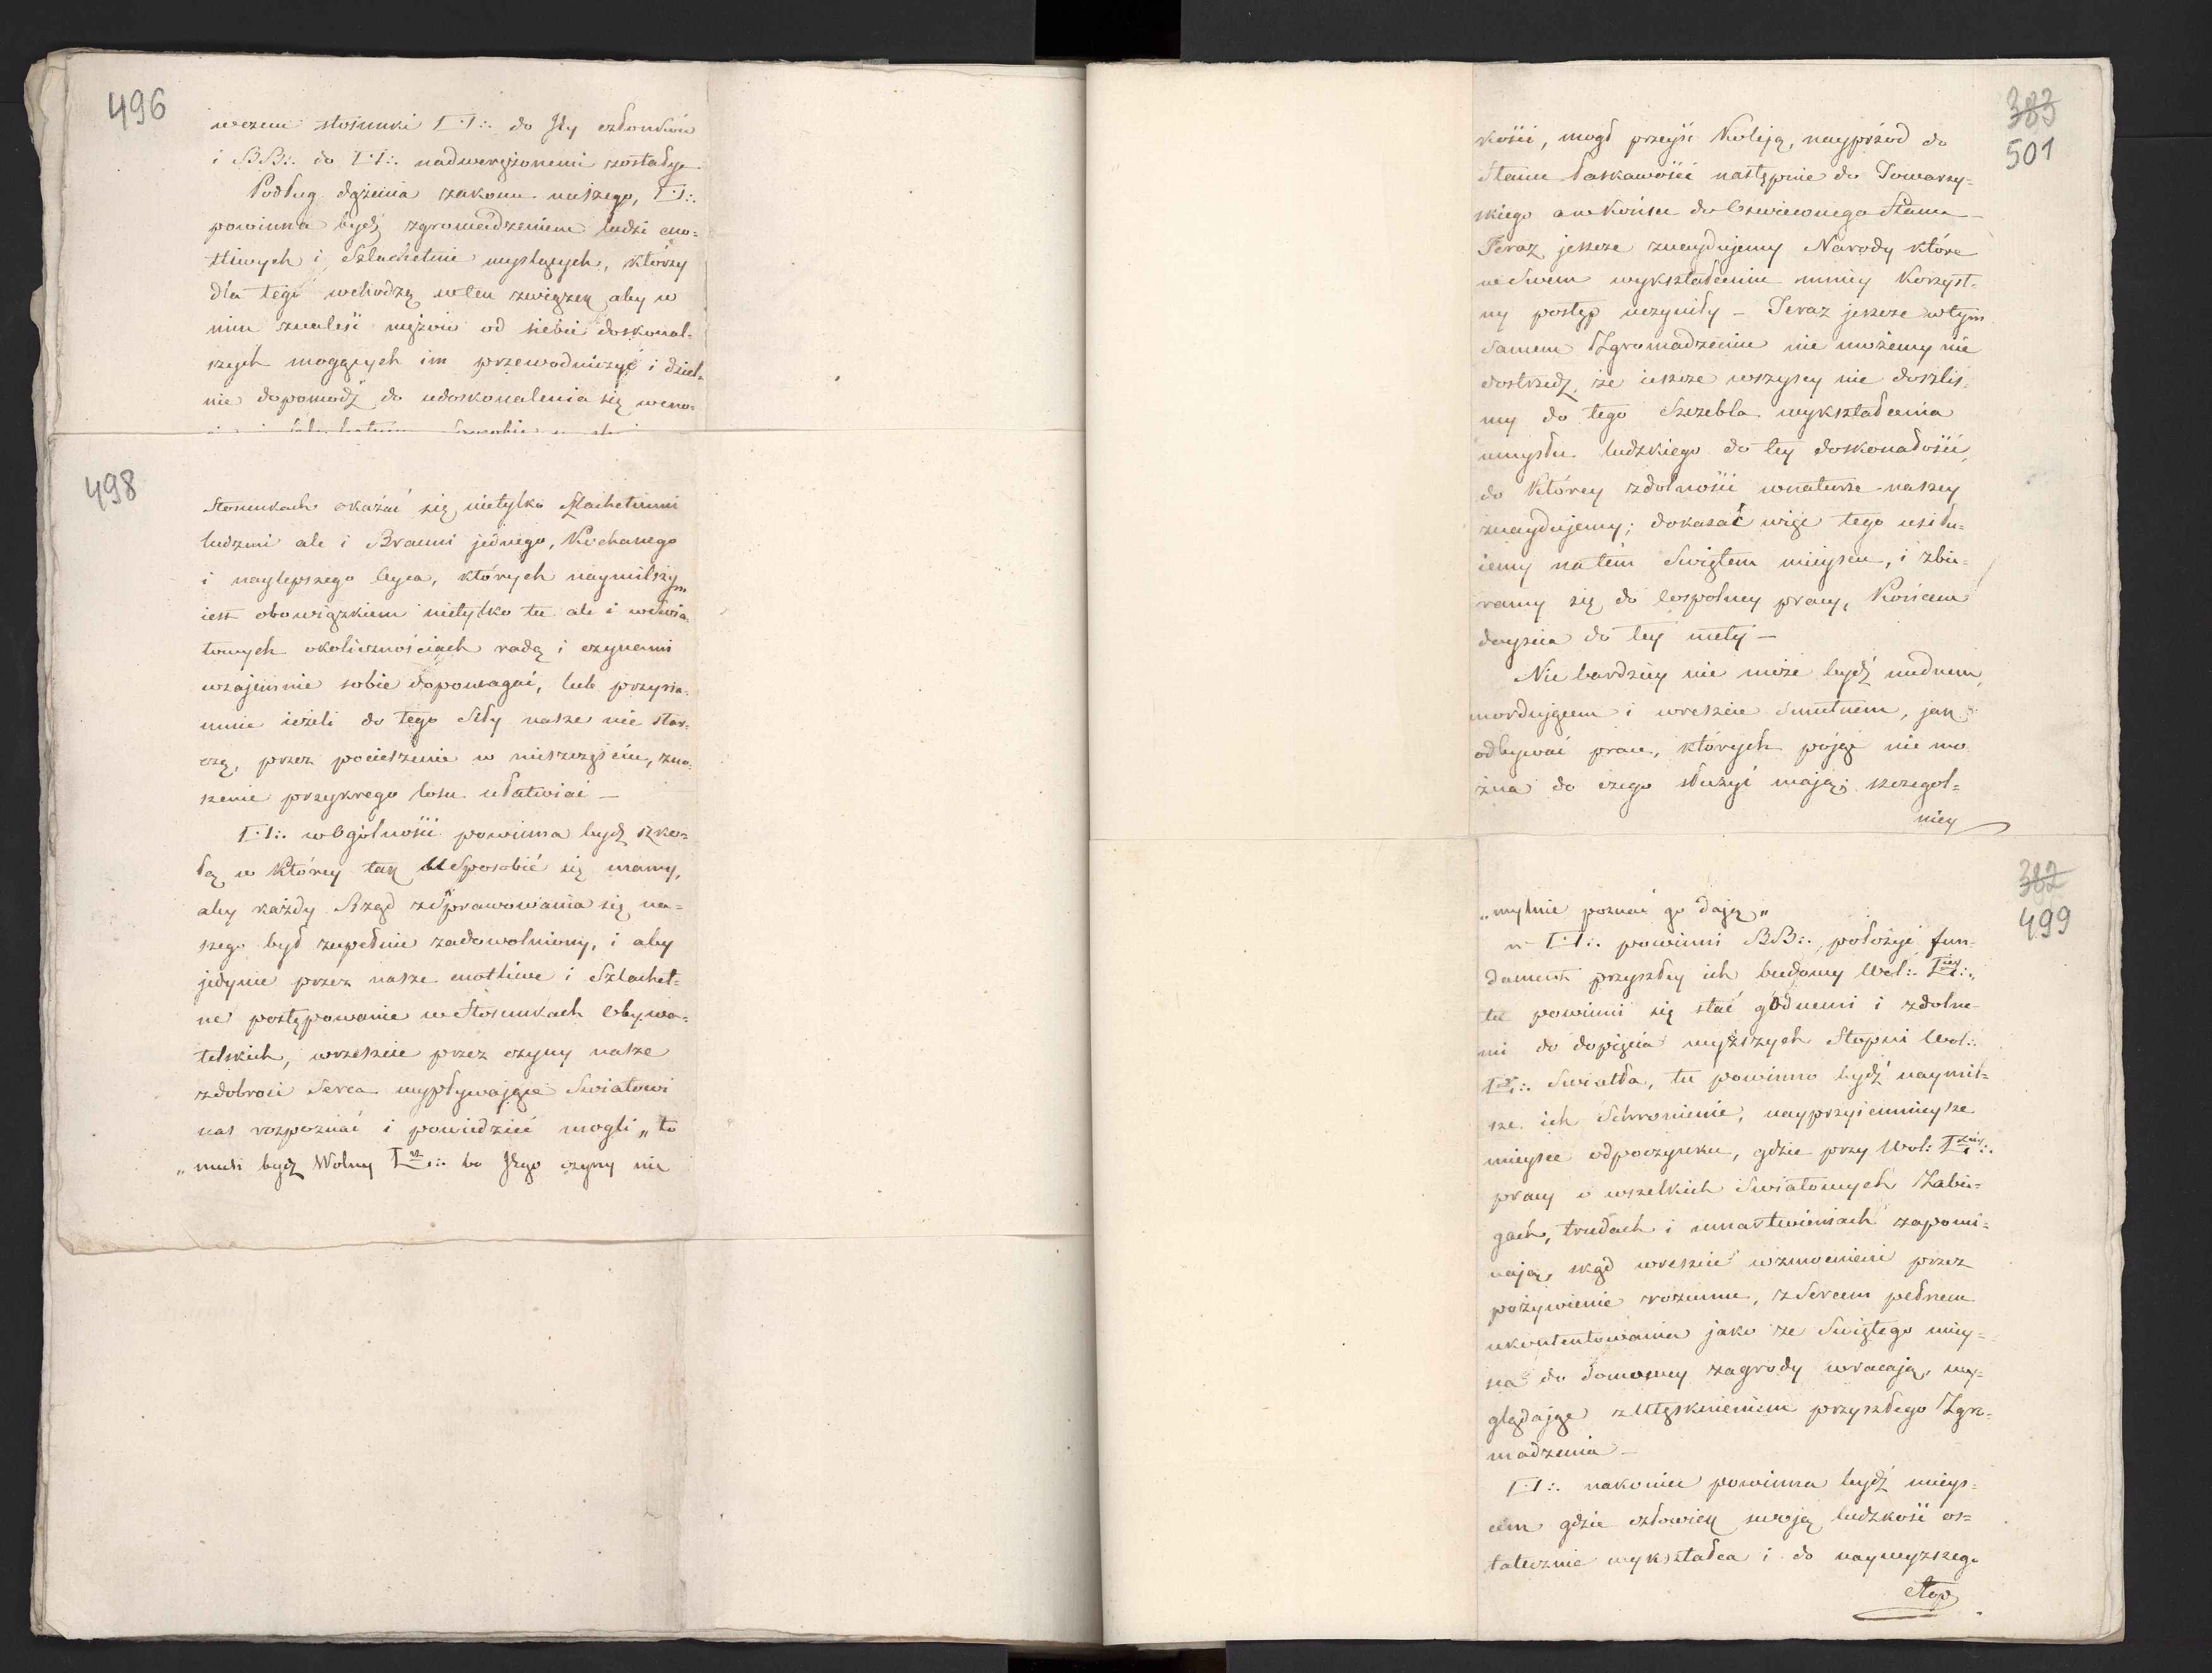 496
wczem stosunki □∴ do Jey członków
i BB∴ do □∴ nadwerężonemi zostały.
Podług dążenia zakonu naszego, □∴
powinna bydź zgromadzeniem ludzi cno=
tliwych i Szlachetnie myslących, którzy
dla tego wchodzą wten związek aby w
nim znaleść mężów od siebie doskonal=
szych mogących im przewodniczyć i dziel=
nie dopomodz do udoskonalenia się wcno=
498
Stosunkach okazać się nietylko Szlachetnemi
ludzmi ale i Bracmi jednego, Kochanego
i naylepszego Oyca, których naymilszym
iest obowiązkiem nietylko tu ale i wświa=
towych okolicznościach radą i czynami
wzajemnie sobie dopomagać, lub przyna=
mnie ieżeli do tego Siły nasze nie star=
czą, przez pocieszenie w nieszczęściu, zno=
szenie przykrego losu ułatwiać —
□∴ wOgólności powinna bydź szko=
łą w Którey tak uSposobić się mamy,
aby każdy Rząd zSprawowania się na=
szego był zupełnie zadowolniony, i aby
jedynie przez nasze cnotliwe i Szlachet=
ne postępowanie wStosunkach Obywa=
telskich, wreszcie przez czyny nasze
zdobroci Serca wypływające Swiatowi
nas rozpoznać i powiedzieć mogli „to
„musi bydz Wolny □∴ bo Jego czyny nie
383
501
kości, mogł przeyść Koleją, nayprzod do
Stanu Łaskawości następnie do Towarzy=
skiego awKońcu do Oswieconego Stanu —
Teraz jeszcze znaydujemy Narody które
weSwem wykształceniu mniey Korzyst=
ny postęp uczyniły — Teraz jeszcze wtym
Samem Zgromadzeniu nie możemy nie
dostrzedz, że ieszcze wszyscy nie doszliś=
my do tego Szczebla wykształcenia
umysłu ludzkiego do tey doskonałości,
do Którey zdolności wnaturze naszey
znaydujemy; dokazać więc tego usiłu=
iemy natém Swiętem mieyscu, i zbie=
ramy się do Ospolney pracy, Końcem
doyscia do tey mety —
Nic bardziey nie może bydź nudnem,
mordującem i wreszcie Smutnem, jak
odbywać prace, których pojąć nie mo
żna do czego służyć mają; szczegol=
niey
382
499
„mylnie poznać go dają„
w □∴ powinni BB∴ położyć fun=
dament przyszłey ich budowy Wol∴
tu powinni się stać godnemi i zdolne=
mi do dopięcia wyższych Stopni Wol∴
□∴ Swiatła, tu powinno bydź naymil=
sze ich Schronienie, nayprzyiemnieysze
mieysce odpoczynku, gdzie przy Wol∴ □∴
pracy o wszelkich Swiatowych Zabie=
gach, trudach i umartwieniach zapomi=
nają, skąd wreszcie wzmocnieni przez
pożywienie rozumu, zSercem pełnem
ukontentowania jako ze Swiętego miey=
sca do domowey zagrody wracają, wy=
glądając zUtęsknieniem przyszłego Zgro=
madzenia —
□∴ nakoniec powinna bydź mieys=
cem gdzie człowiek swoją ludzkość os=
tatecznie wykształca i do naywyższego
Stop